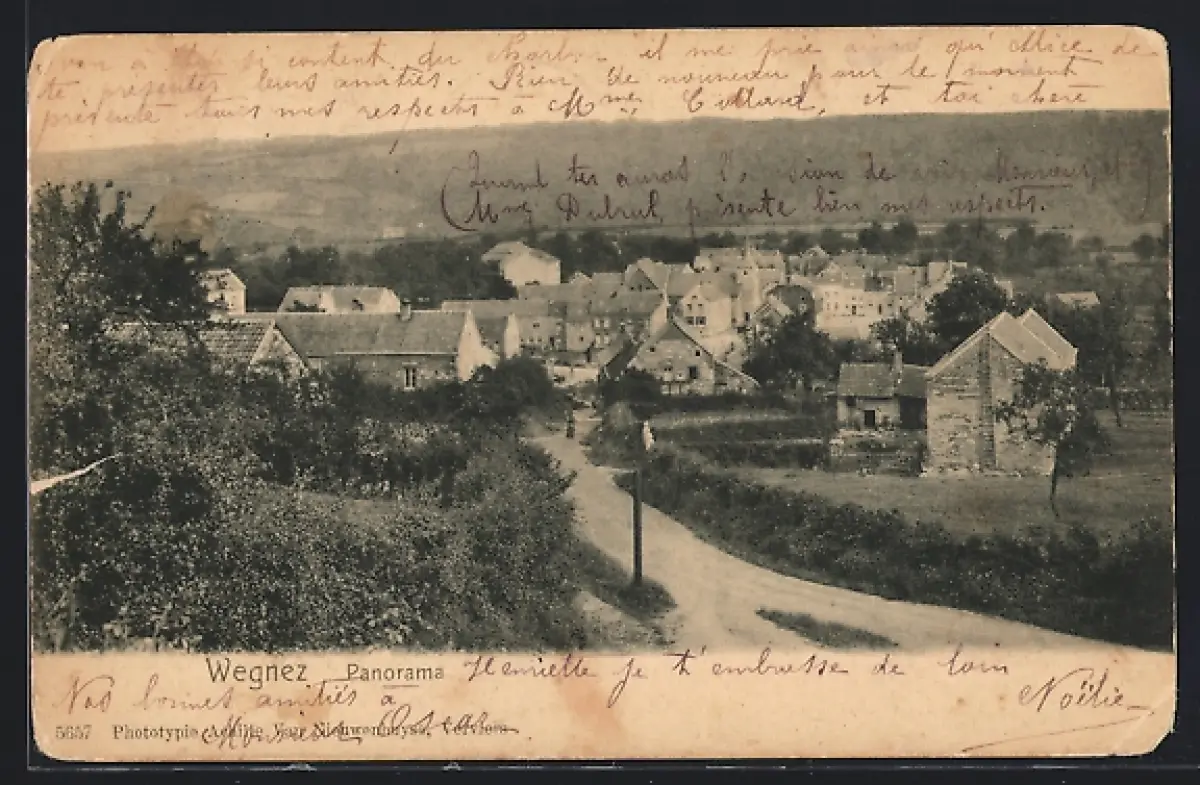 si content du Charbon il me prie ainsi qu'Alice de
te présenter leurs amitiés. Rien de nouveau pour le moment
présente tous mes respects à Mme Collard, et toi chère
Quand tu auras de voir Monsieur et
Mme Dubrul, présente bien mes respects.
Wegnez Panorama Henriette je t'embrasse de loin
Nos bonnes amitiés à Noëlie
Monsieur Oscar
5657 Phototypie Achille Van Nieuwenhuyse, Verviers